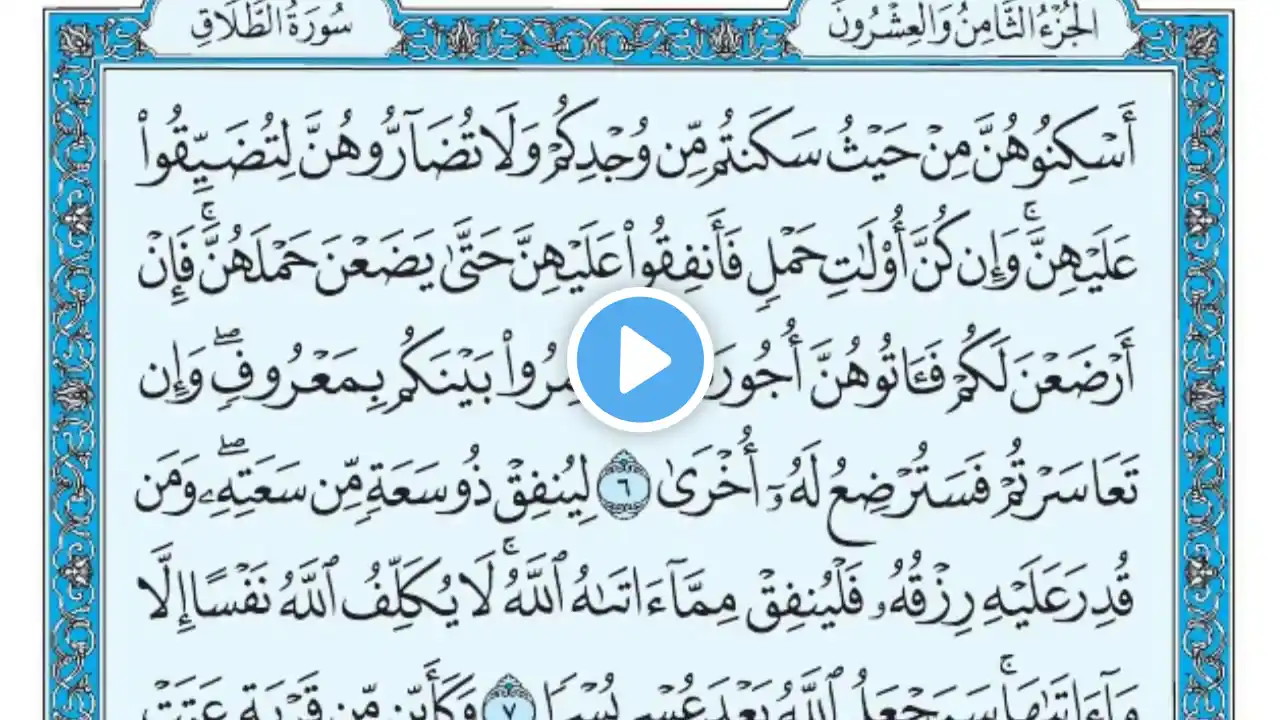 الجُزْءُ الثَّامِنُ وَالعِشْرُونَ
سُورَةُ الطَّلَاقِ
أَسْكِنُوهُنَّ مِنْ حَيْثُ سَكَنتُم مِّن وُجْدِكُمْ وَلَا تُضَآرُّوهُنَّ لِتُضَيِّقُوا۟
عَلَيْهِنَّ ۚ وَإِن كُنَّ أُو۟لَـٰتِ حَمْلٍ فَأَنفِقُوا۟ عَلَيْهِنَّ حَتَّىٰ يَضَعْنَ حَمْلَهُنَّ ۚ فَإِنْ
أَرْضَعْنَ لَكُمْ فَـَٔاتُوهُنَّ بَيْنَكُم بِمَعْرُوفٍ ۖ وَإِن
تَعَاسَرْتُمْ فَسَتُرْضِعُ لَهُۥٓ أُخْرَىٰ ٦ لِيُنفِقْ ذُو سَعَةٍ مِّن سَعَتِهِۦ ۖ وَمَن
قُدِرَ عَلَيْهِ رِزْقُهُۥ فَلْيُنفِقْ مِمَّآ ءَاتَىٰهُ ٱللَّهُ ۚ لَا يُكَلِّفُ ٱللَّهُ نَفْسًا إِلَّا
مَآ ءَاتَىٰهَا ۚ سَيَجْعَلُ ٱللَّهُ بَعْدَ عُسْرٍ يُسْرًا ٧ وَكَأَيِّن مِّن قَرْيَةٍ عَتَتْ